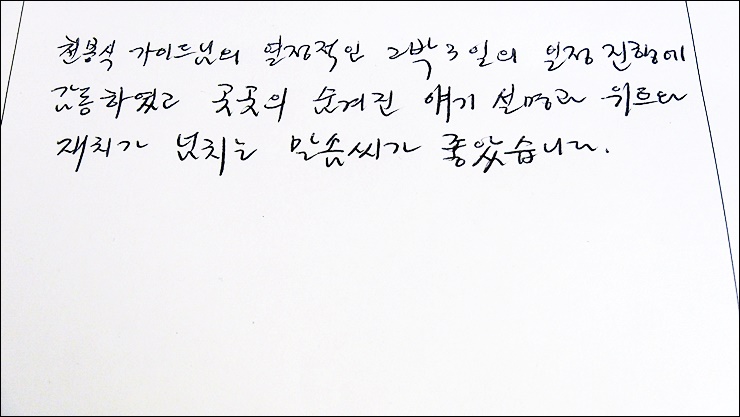 천봉식 가이드님의 열정적인 2박3일의 일정 진행에
감동하였고 곳곳의 숨겨진 얘기 설명과 위트와
재치가 넘치는 말솜씨가 좋았습니다.